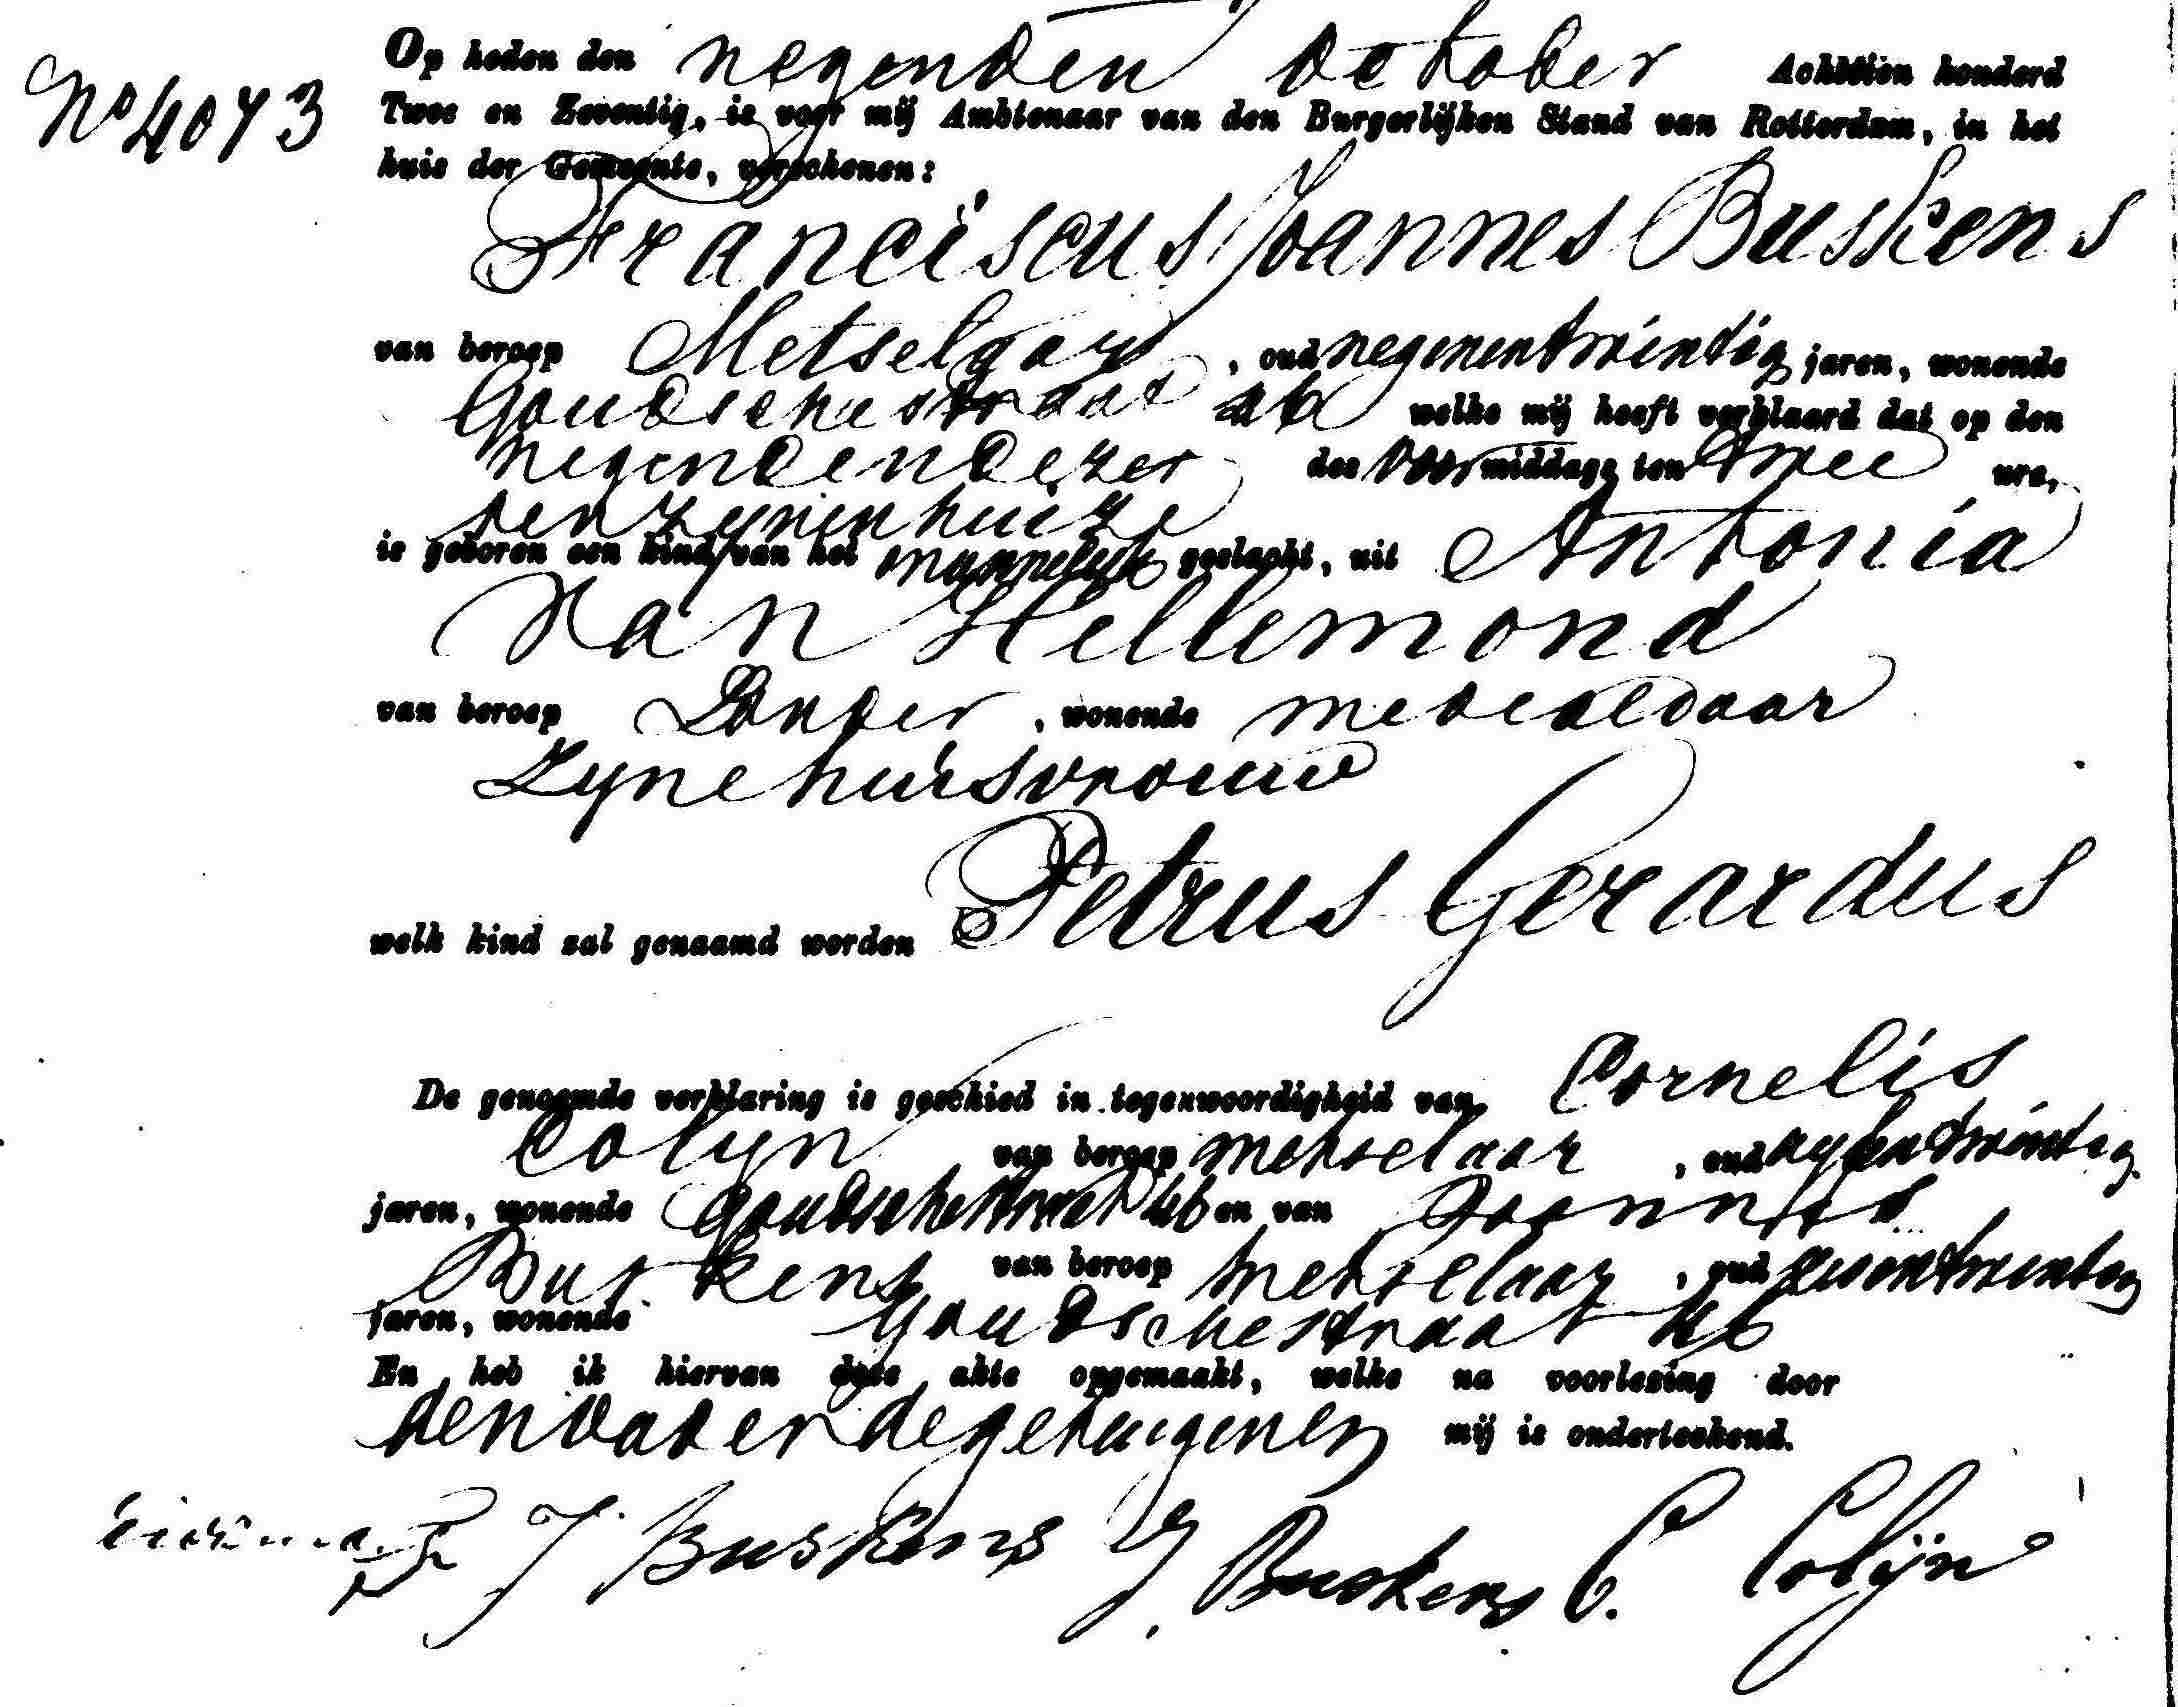 No 4073
Op heden den negenden October Achttien honderd
Twee en Zeventig, is voor mij Ambtenaar van den Burgerlijken Stand van Rotterdam, in het
huis der Gemeente, verschenen:
Franciscus Joannes Buskens
van beroep Metselaar, oud negenentwintig jaren, wonende
Goudschestraat welke mij heeft verklaard dat op den
negenden dezer des voormiddags ten twee ure,
ten zynen huize
is geboren een kind van het mannelyk geslacht, uit Antonia
Van Hellemond
van beroep Zonder, wonende mede aldaar
Zyne huisvrouw
welk kind zal genaamd worden Petrus Gerardus
De genoemde verklaring is geschied in tegenwoordigheid van Cornelis
Colyn van beroep metselaar, oud
jaren, wonende Goudschestraat en van Joannes
Buskens van beroep metselaar, oud zesentwintig
jaren, wonende Goudschestraat
En heb ik hiervan deze akte opgemaakt, welke na voorlezing door
den vader de getuigen en mij is onderteekend.
F J Buskens J. Buskens C. Colijn